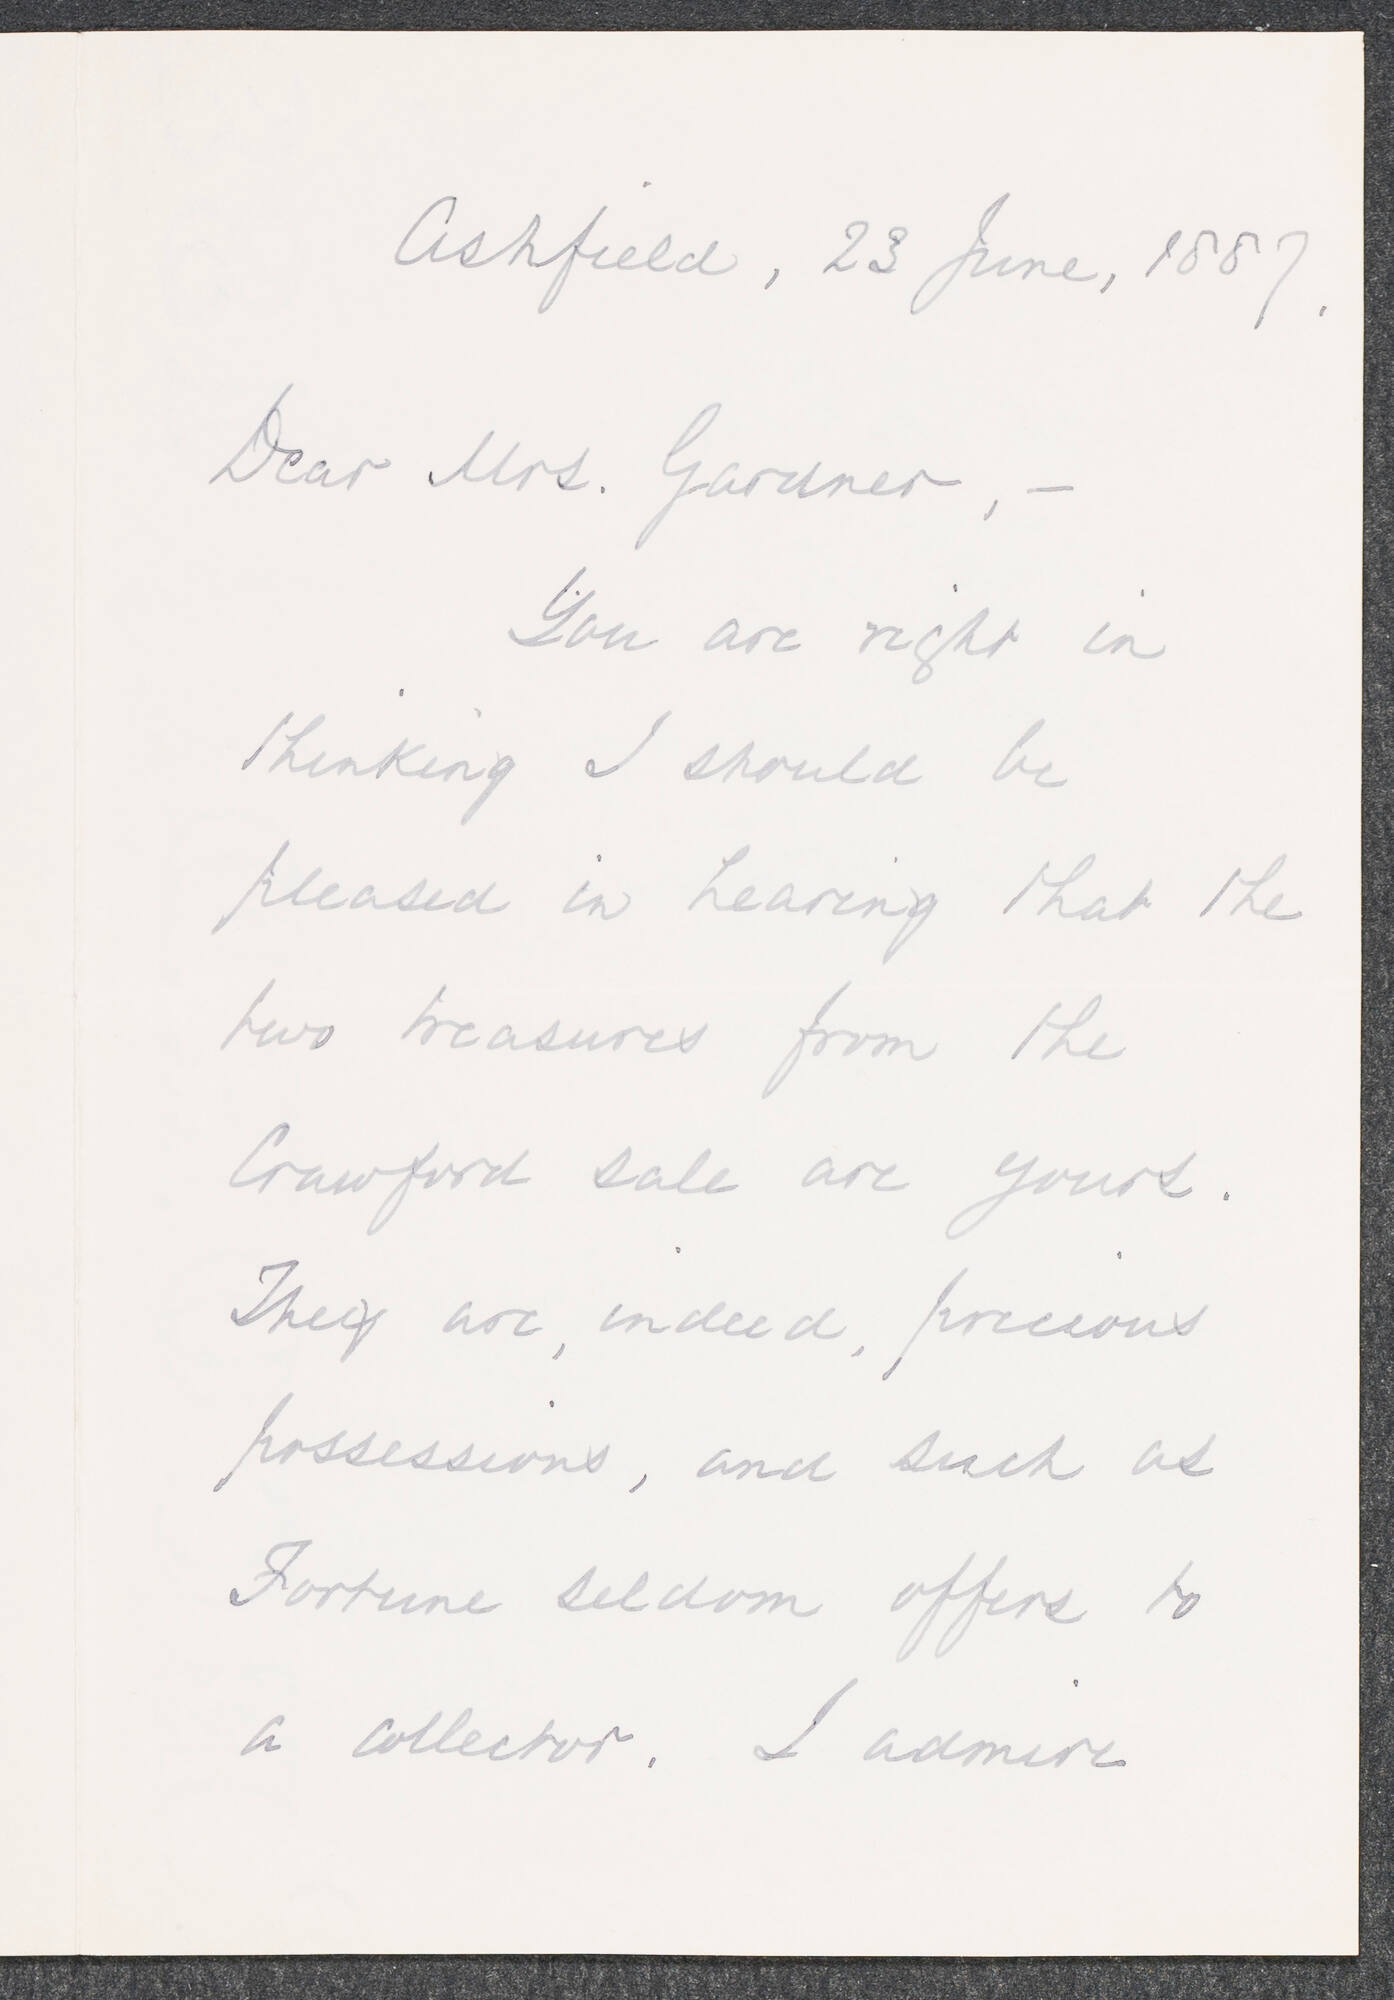 Ashfield, 23 June, 1887.
Dear Mrs. Gardner, –
You are right in
thinking I should be
pleased in hearing that the
two treasures from the
Crawford sale are yours.
They are, indeed, precious
possessions, and such as
Fortune seldom offers to
a collector. I admire